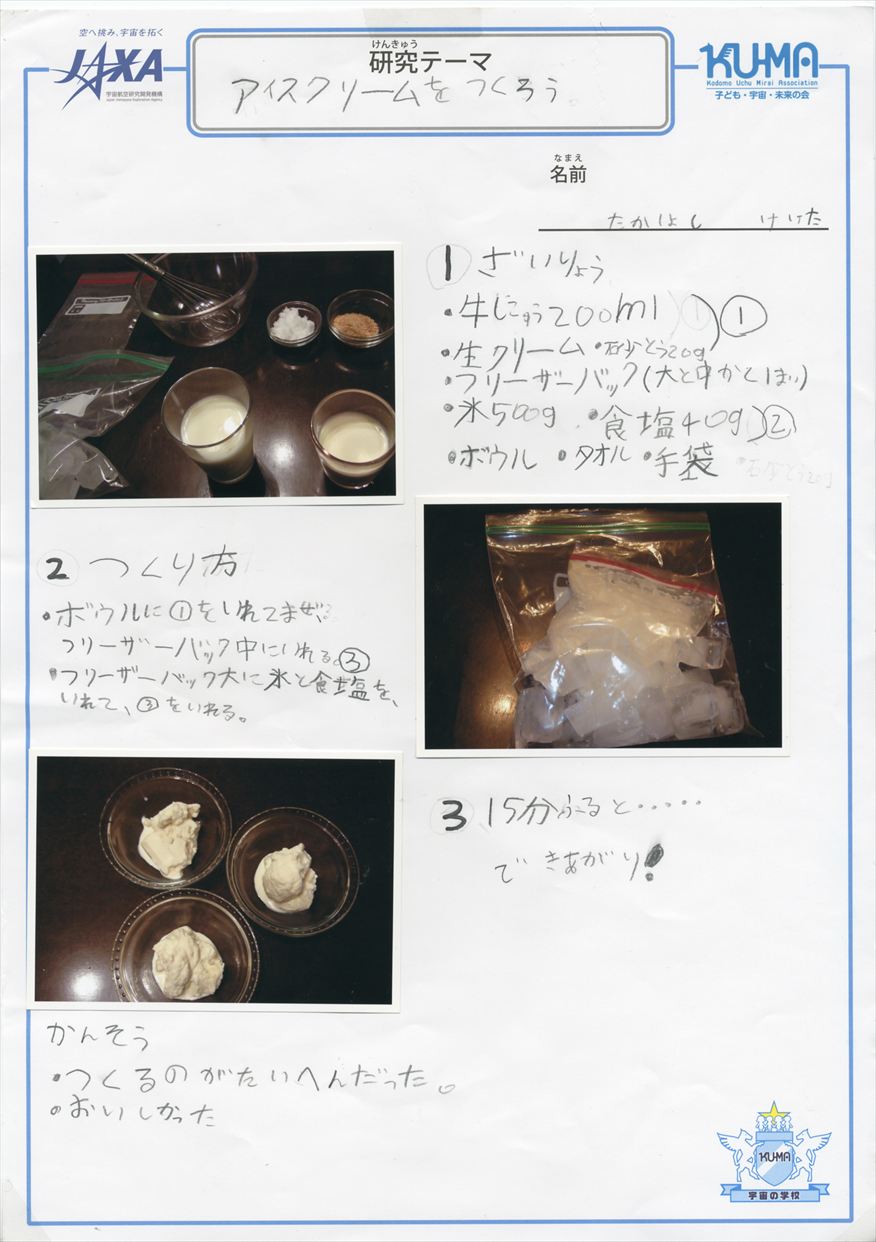 空へ挑み、宇宙を拓く
JAXA
宇宙航空研究開発機構
Japan Aerospace Exploration Agency
けんきゅう
研究テーマ
アイスクリームをつくろう。
KU-MA
Kodomo Uchu Mirai Association
子ども・宇宙・未来の会
なまえ
名前
たかよし けいた
1 ざいりょう
・牛にゅう200ml ①
・生クリーム ・砂とう20g
・フリーザーバック(大と中かく1まい)
・氷500g ・食塩40g ②
・ボウル ・タオル ・手袋
・砂とう20g
2 つくり方
・ボウルに①をいれてまぜ、
フリーザーバック中にいれる。③
・フリーザーバック大に氷と食塩を、
いれて、③をいれる。
3 15分ふると・・・・・
できあがり!
かんそう
・つくるのがたいへんだった。
・おいしかった
KU-MA
宇宙の学校